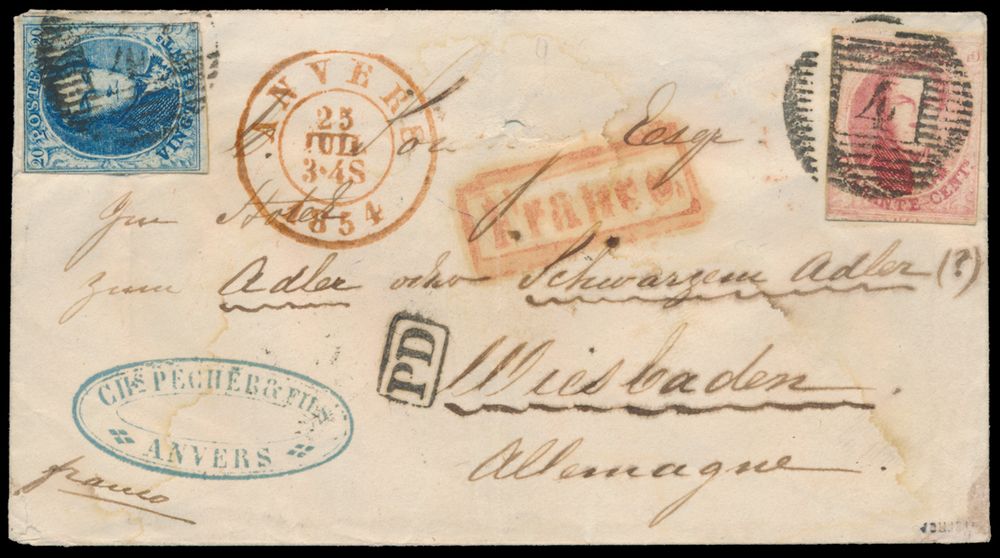 POSTES 20
VINGT CENTS
4
ANVERS
25
JUIL
3·4S
1854
Esqr
Im Hotel
Franco.
zum Adler oder Schwarzem Adler (?)
PD
Wiesbaden.
Allemagne.
CHs PECHER & FILS
ANVERS
franco